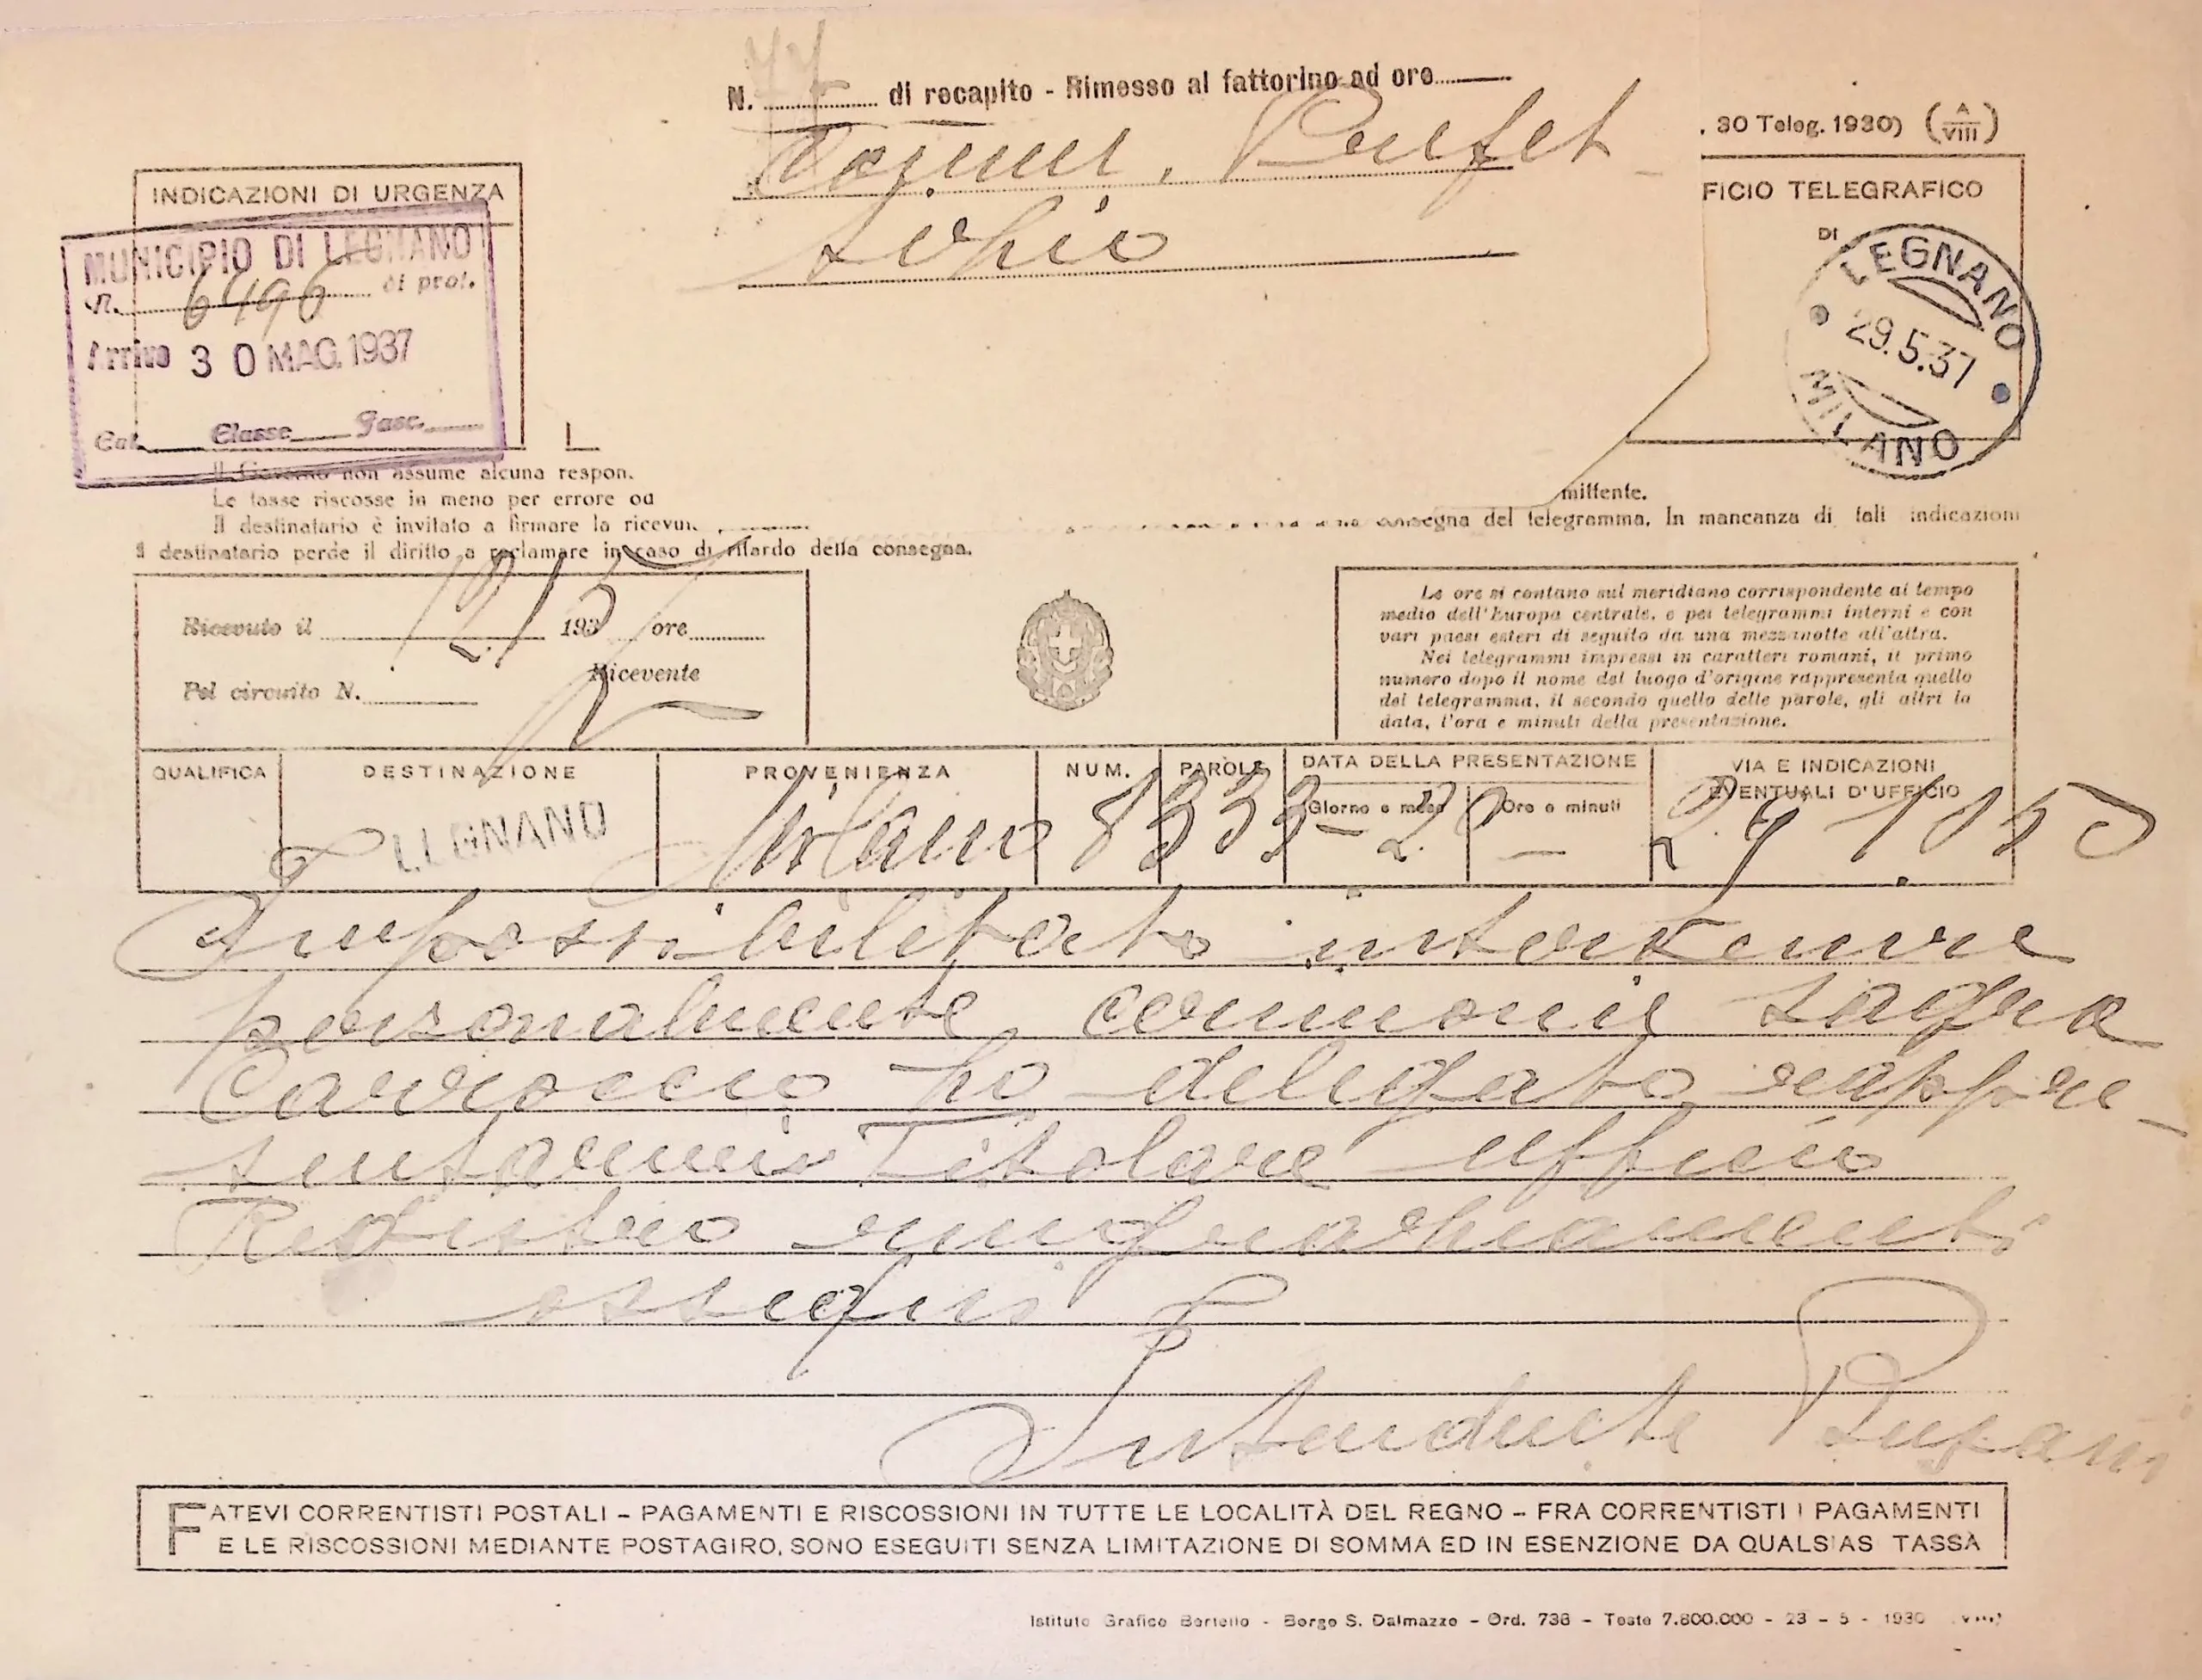 N. 77 di recapito - Rimesso al fattorino ad ore
Comm. Prefet
tizio
. 30 Teleg. 1930) (A VIII)
INDICAZIONI DI URGENZA
FICIO TELEGRAFICO
DI
MUNICIPIO DI LEGNANO
N. 6496 di prot.
Arrivo 30 MAG. 1937
Cat. Classe Fasc.
LEGNANO
29.5.37
MILANO
Il Governo non assume alcuna respon.
mittente.
Le tasse riscosse in meno per errore od
Il destinatario è invitato a firmare la ricevu
consegna del telegramma. In mancanza di tali indicazioni
il destinatario perde il diritto a reclamare in caso di ritardo della consegna.
Ricevuto il 193 ore
Ricevente
Pel circuito N.
Le ore si contano sul meridiano corrispondente al tempo
medio dell'Europa centrale, e pei telegrammi interni e con
vari paesi esteri di seguito da una mezzanotte all'altra.
Nei telegrammi impressi in caratteri romani, il primo
numero dopo il nome del luogo d'origine rappresenta quello
del telegramma, il secondo quello delle parole, gli altri la
data, l'ora e minuti della presentazione.
QUALIFICA DESTINAZIONE PROVENIENZA NUM. PAROLE DATA DELLA PRESENTAZIONE VIA E INDICAZIONI
Giorno e mese Ore e minuti EVENTUALI D'UFFICIO
LEGNANO Milano 8333 - 20 - 29
Impossibilitato intervenire
personalmente cerimonie sagra
Carroccio ho delegato rappre-
sentarmi Titolare ufficio
Registro ringraziamenti
ossequi
Intendente
FATEVI CORRENTISTI POSTALI - PAGAMENTI E RISCOSSIONI IN TUTTE LE LOCALITÀ DEL REGNO - FRA CORRENTISTI I PAGAMENTI
E LE RISCOSSIONI MEDIANTE POSTAGIRO, SONO ESEGUITI SENZA LIMITAZIONE DI SOMMA ED IN ESENZIONE DA QUALSIAS TASSA
Istituto Grafico Bertello - Borgo S. Dalmazzo - Ord. 736 - Teste 7.800.000 - 23 - 5 - 1930